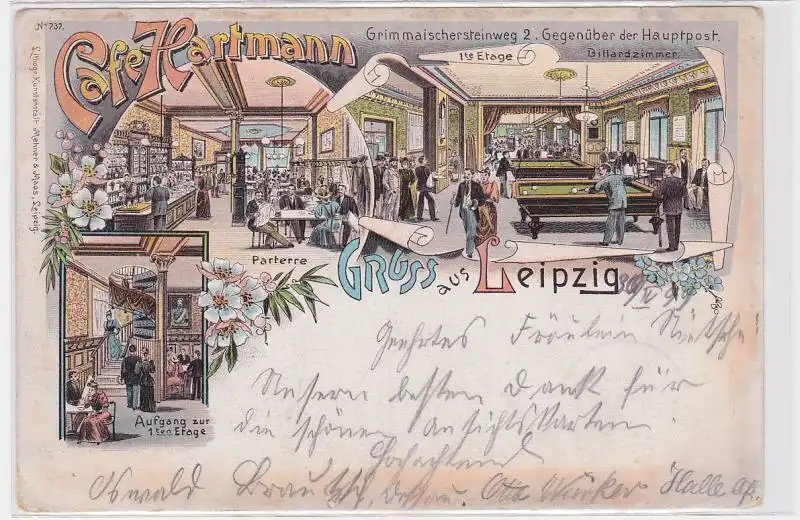 No 737.
Cafe Hartmann
Grimmaischersteinweg 2. Gegenüber der Hauptpost.
1te Etage
Billardzimmer
Lithogr. Kunstanstalt Mehner & Maas, Leipzig.
Parterre
Gruss aus Leipzig
Aufgang zur
1ten Etage
Geehrtes Fräulein
Unsern besten Dank für
die schönen Ansichtskarten
Hochachtend
Oswald Dessau. Otto Halle